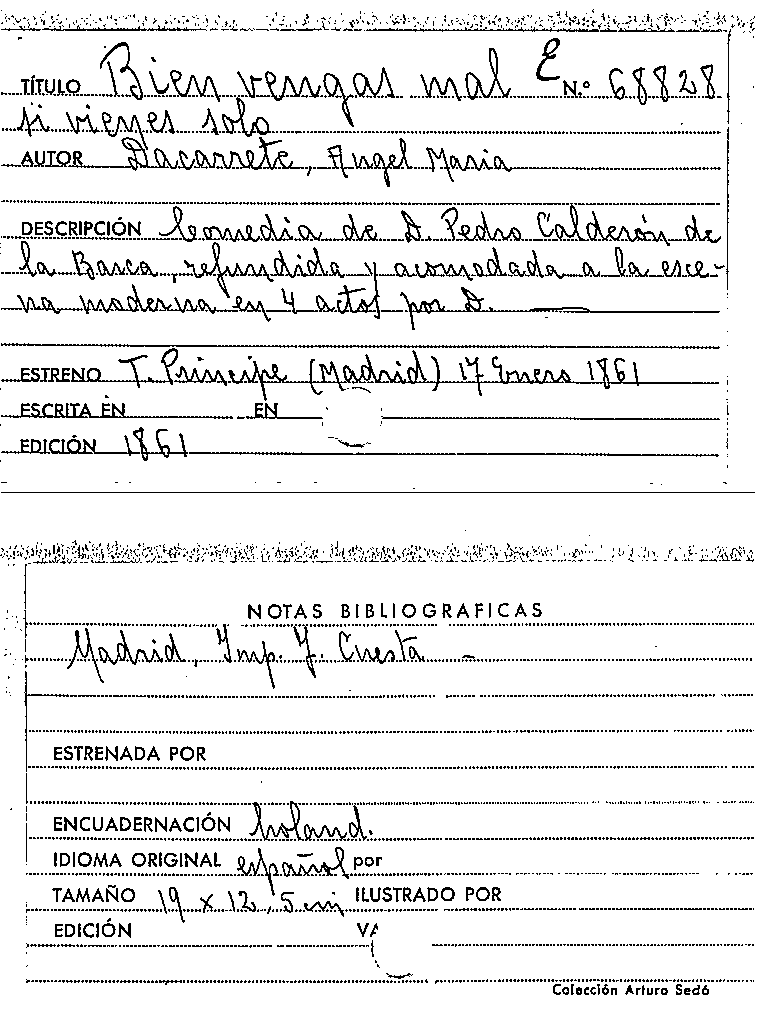 TÍTULO Bien vengas mal E N.º 68828
si vienes solo
AUTOR Dacarrete, Angel Maria
DESCRIPCIÓN Comedia de D. Pedro Calderón de
la Barca, refundida y acomodada a la esce-
na moderna en 4 actos por D. ——
ESTRENO T. Principe (Madrid) 17 Enero 1861
ESCRITA EN EN
EDICIÓN 1861
NOTAS BIBLIOGRAFICAS
Madrid, Imp. J. Cuesta -
ESTRENADA POR
ENCUADERNACIÓN holand.
IDIOMA ORIGINAL español por
TAMAÑO 19 x 12,5 cm ILUSTRADO POR
EDICIÓN
Colección Arturo Sedó